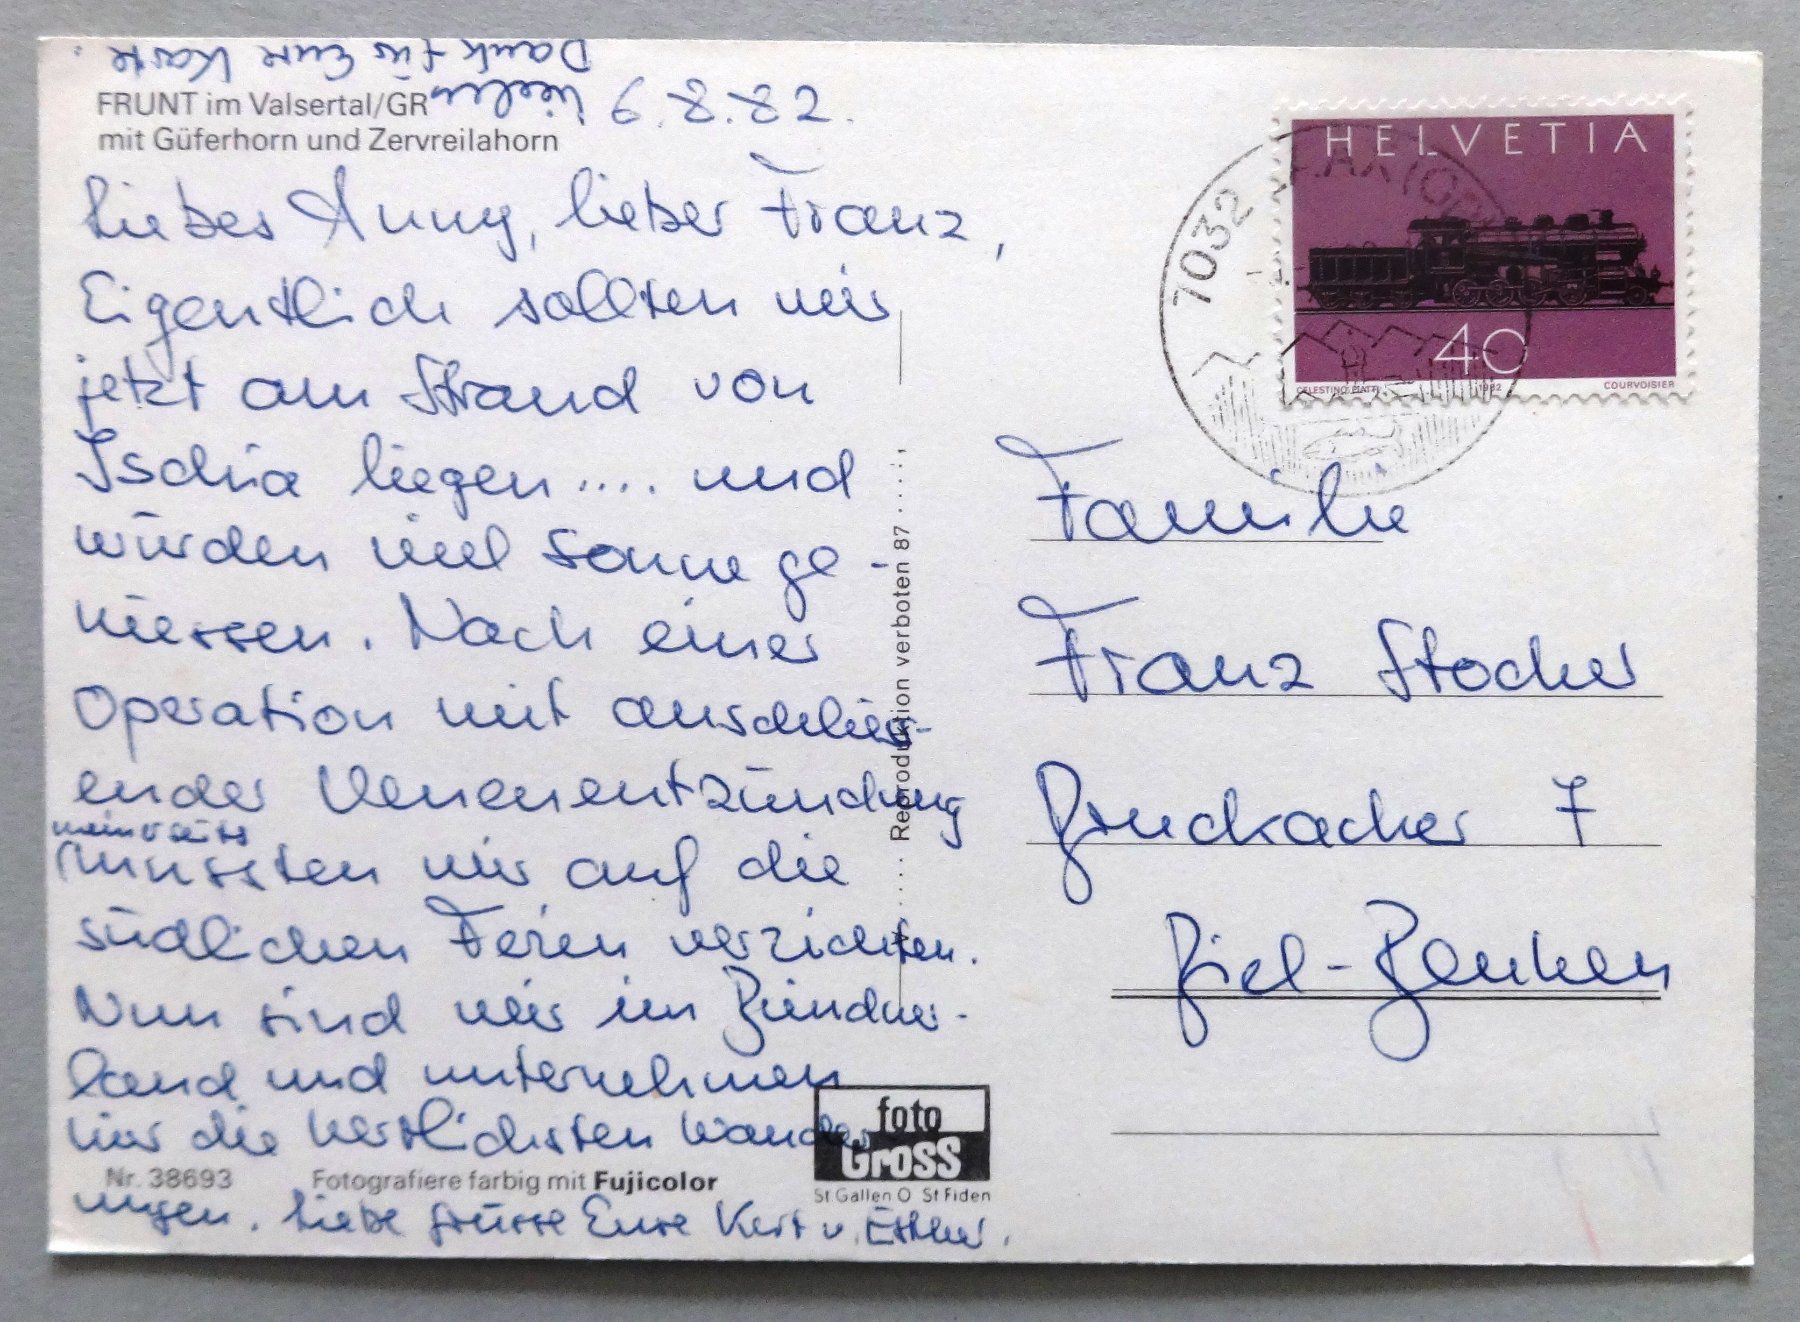 Vielen
Dank für Eure Karte.
FRUNT im Valsertal/GR
mit Güferhorn und Zervreilahorn
6.8.82.
Liebes Anny, lieber Franz,
Eigentlich sollten wir
jetzt am Strand von
Ischia liegen.... und
würden viel Sonne ge-
niessen. Nach einer
Operation mit anschliess-
ender Venenentzündung
meinerseits
mussten wir auf die
südlichen Ferien verzichten.
Nun sind wir im Bündner-
land und unternehmen
hier die herrlichsten Wander
ungen. Liebe Grüsse Eure Kurt u. Esther.
Nr. 38693
Fotografiere farbig mit Fujicolor
foto
Gross
St Gallen O St Fiden
Reproduktion verboten 87
HELVETIA
40
CELESTINO PIATTI
1982
COURVOISIER
7032
Familie
Franz Stocker
Bruckacher 7
Biel-Benken